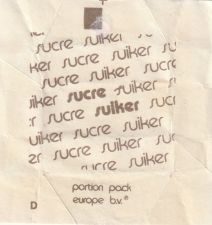 sucre suiker
suiker sucre
sucre suiker sucre
suiker sucre suiker
sucre suiker sucre
suiker sucre suiker
sucre suiker
portion pack
europe b.v.®
D